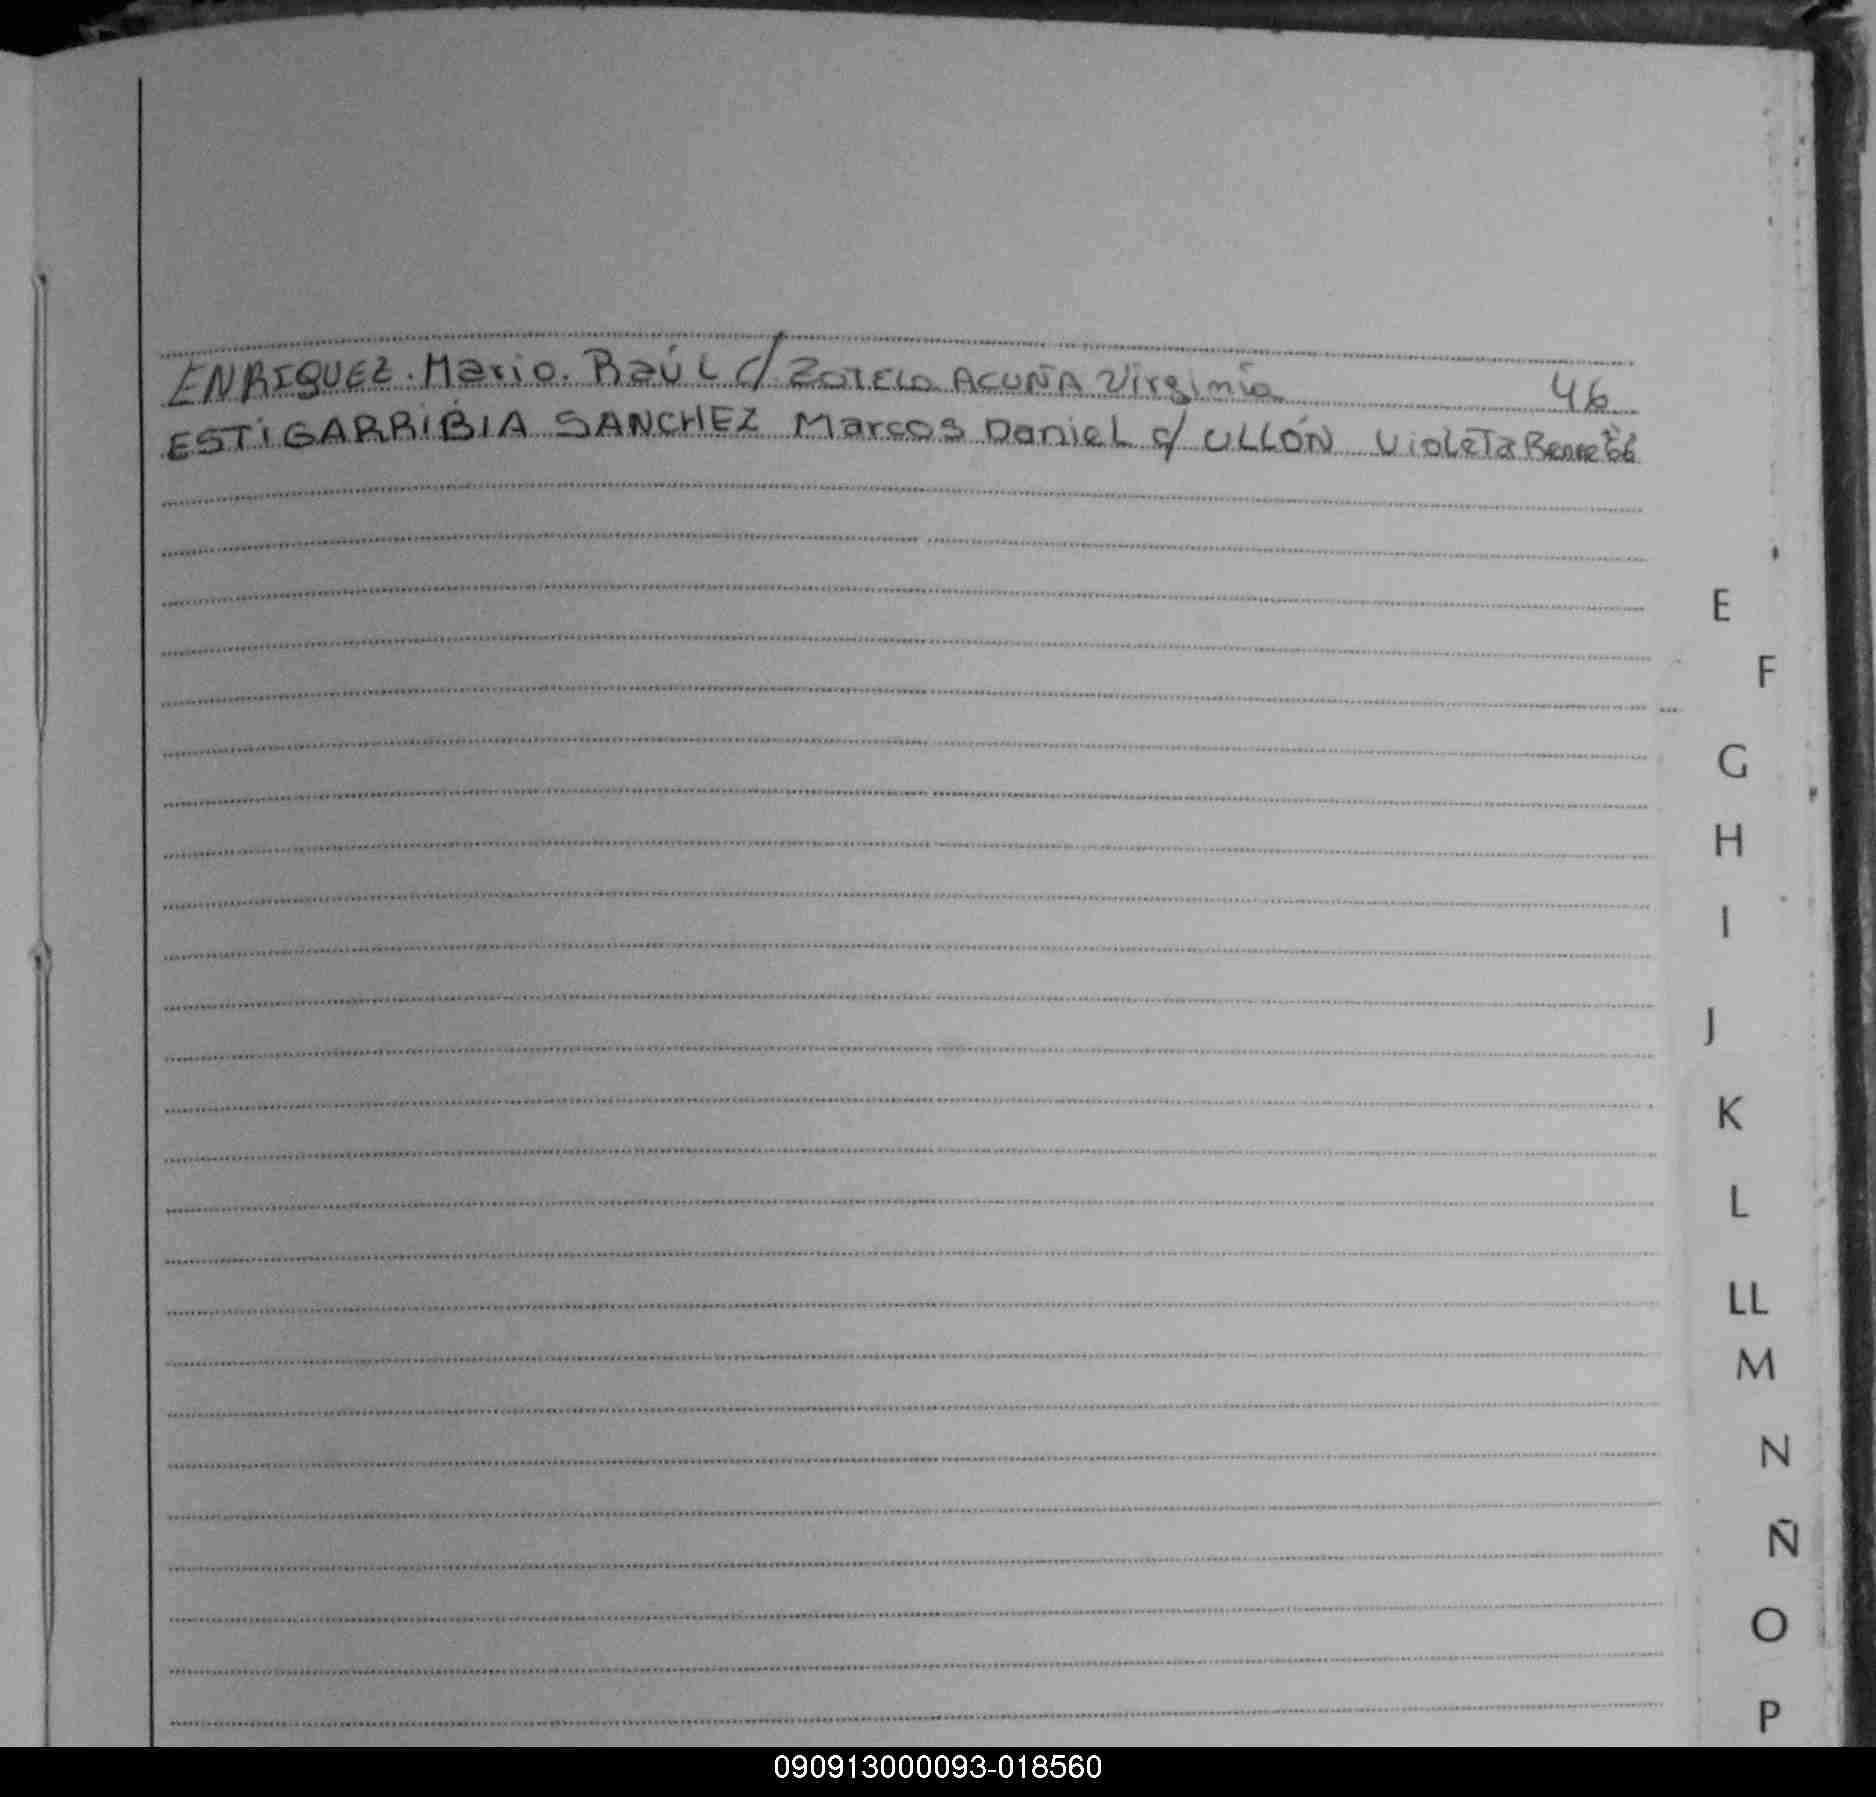 ENRIQUEZ. Mario. Raúl c/ ZOTELO ACUÑA Virginia 46
ESTIGARRIBIA SANCHEZ Marcos Daniel c/ ULLÓN Violeta Renee 66
E
F
G
H
I
J
K
L
LL
M
N
Ñ
O
P
090913000093-018560